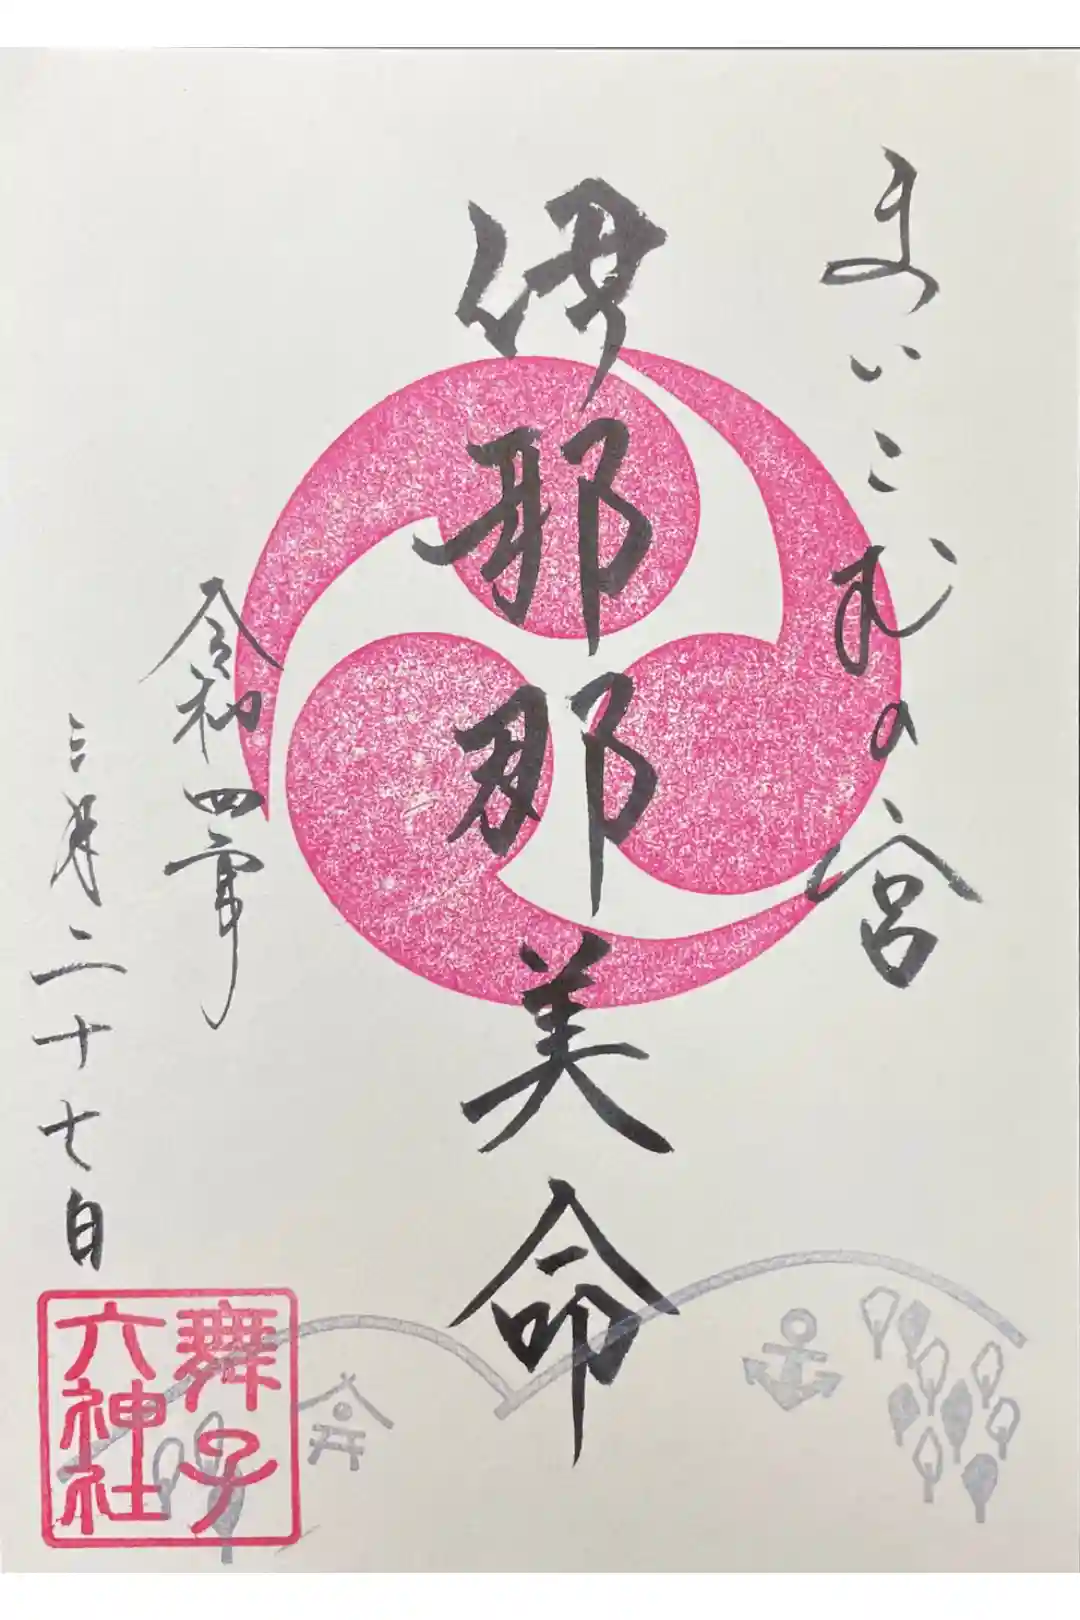 まいこむの宮
伊耶那美命
令和四年
三月二十七日
舞子
六神社